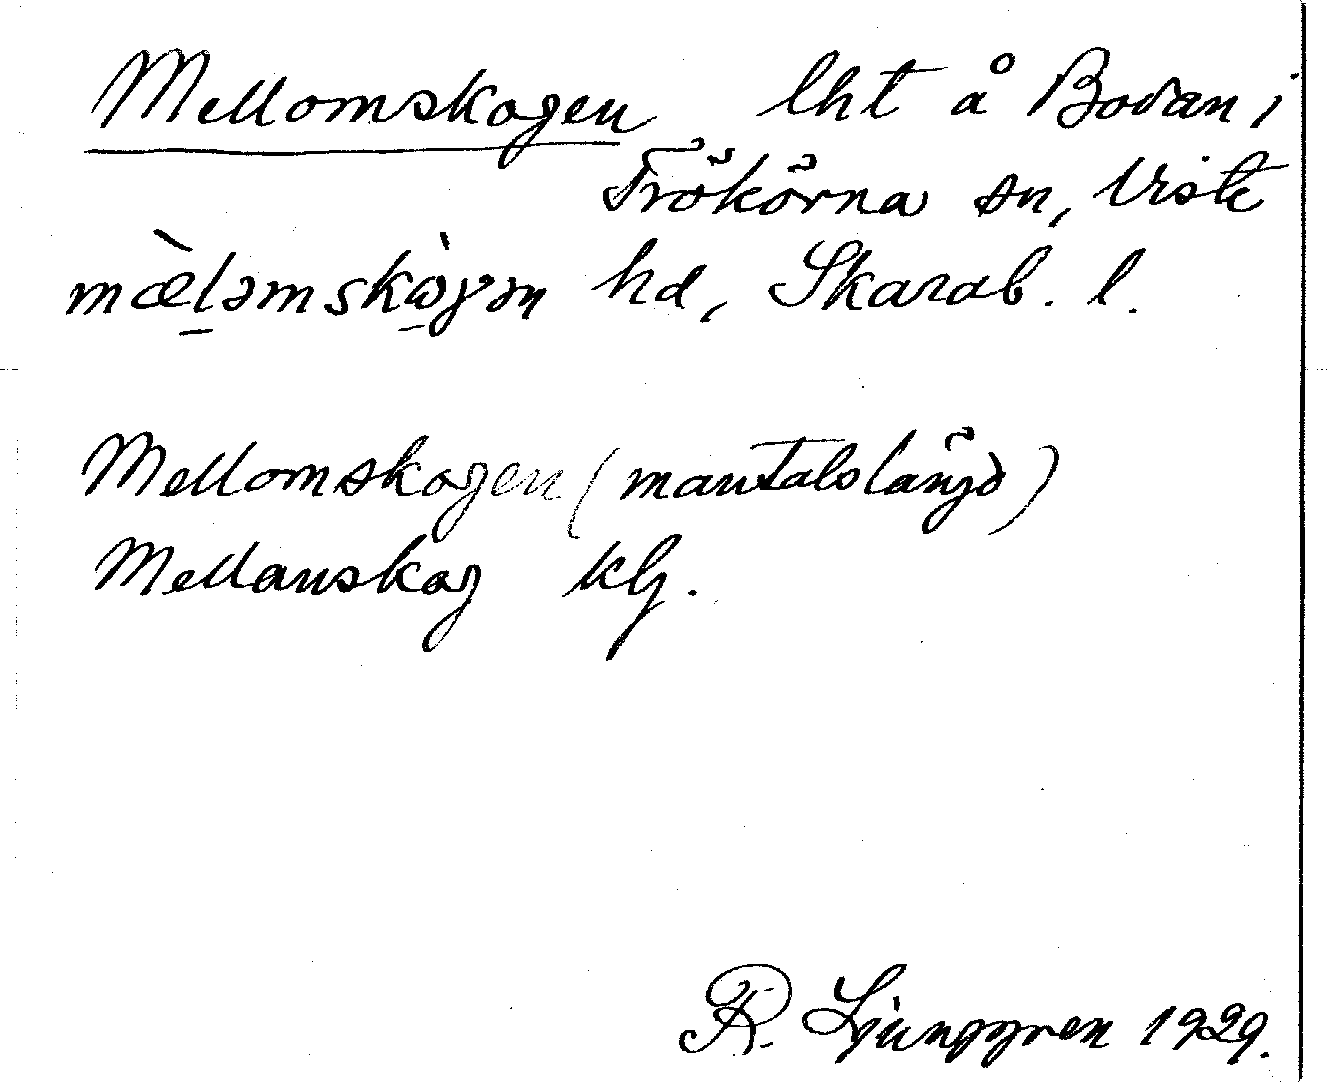 Mellomskogen lht å Bodan i
Trökörna sn, Viste
mæ̀l̠əmskò̠gən hd, Skarab. l.
Mellomskogen (mantalslängd)
Mellanskog kbj.
R. Ljunggren 1929.